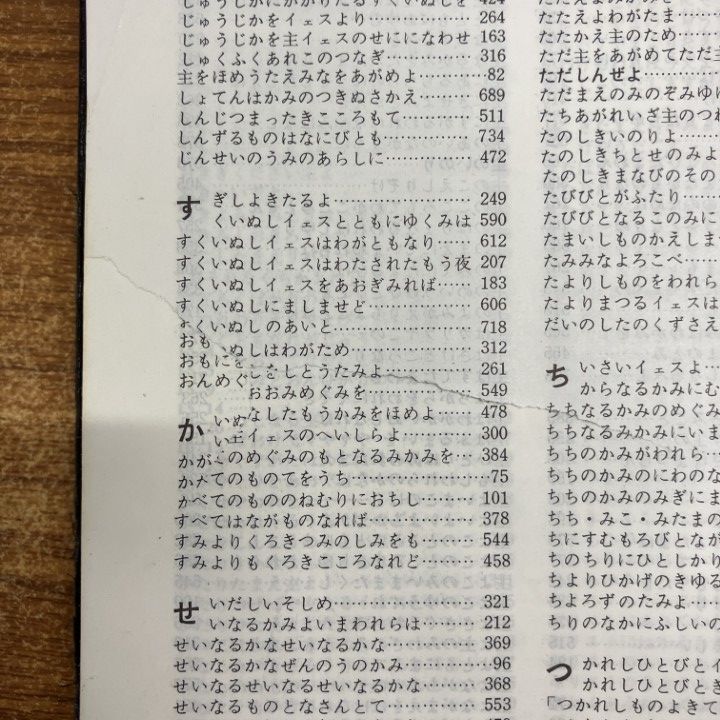 じゅうじかにかかりたるすくいぬしを 424
じゅうじかをイェスより………………264
じゅうじかを主イェスのせにになわせ 163
しゅくふくあれこのつなぎ……………316
主をほめうたえみなをあがめよ…………82
しょてんはかみのつきぬさかえ………689
しんじつまったきこころもて…………511
しんずるものはなにびとも……………734
じんせいのうみのあらしに……………472
す ぎしよきたるよ………………………249
くいぬしイェスとともにゆくみは 590
すくいぬしイェスはわがともなり……612
すくいぬしイェスはわたされたもう夜 207
すくいぬしイェスをあおぎみれば……183
すくいぬしにましませど………………606
すくいぬしのあいと……………………718
おも
ぬしはわがため……………………312
おもに
をしとうたみよ……………………261
おんめぐ
おおみめぐみを……………………549
なしたもうかみをほめよ…………478
か いぬ
主イェスのへいしらよ……………300
かが
このめぐみのもとなるみかみを……384
てのものてをうち……………………75
べてのもののねむりにおちし………101
すべてはながものなれば………………378
すみよりくろきつみのしみをも………544
すみよりもくろきこころなれど………458
せ いだしいそしめ………………………321
いなるかみよいまわれらは………212
せいなるかなせいなるかな……………369
せいなるかなぜんのうのかみ……………96
せいなるせいなるせいなるかな………368
せいなるものとなさんとて……………553
たたえよわがたま
たたかえ主のため
ただ主をあがめてただ主
ただしんぜよ
ただまえのみのぞみゆけ
たちあがれいざ主のつわ
たのしきいのりよ
たのしきちとせのみよ
たのしきまなびのその
たびびとがふたり
たびびとなるこのみに
たまいしものかえしま
たみみなよろこべ
たよりしものをわれら
たよりまつるイェスは
だいのしたのくずさえ
ち いさいイェスよ
からなるかみにむ
ちちなるかみのめぐみ
ちちなるみかみにいま
ちちのかみがわれら
ちちのかみのにわのな
ちちのかみのみぎにま
ちち・みこ・みたまの
ちにすむもろびとなが
ちのちりにひとしかり
ちよりひかげのきゆる
ちよろずのたみよ
ちりのなかにふしいの
つ かれしひとびとイ
かれしひとびとき
「つかれしものよきて